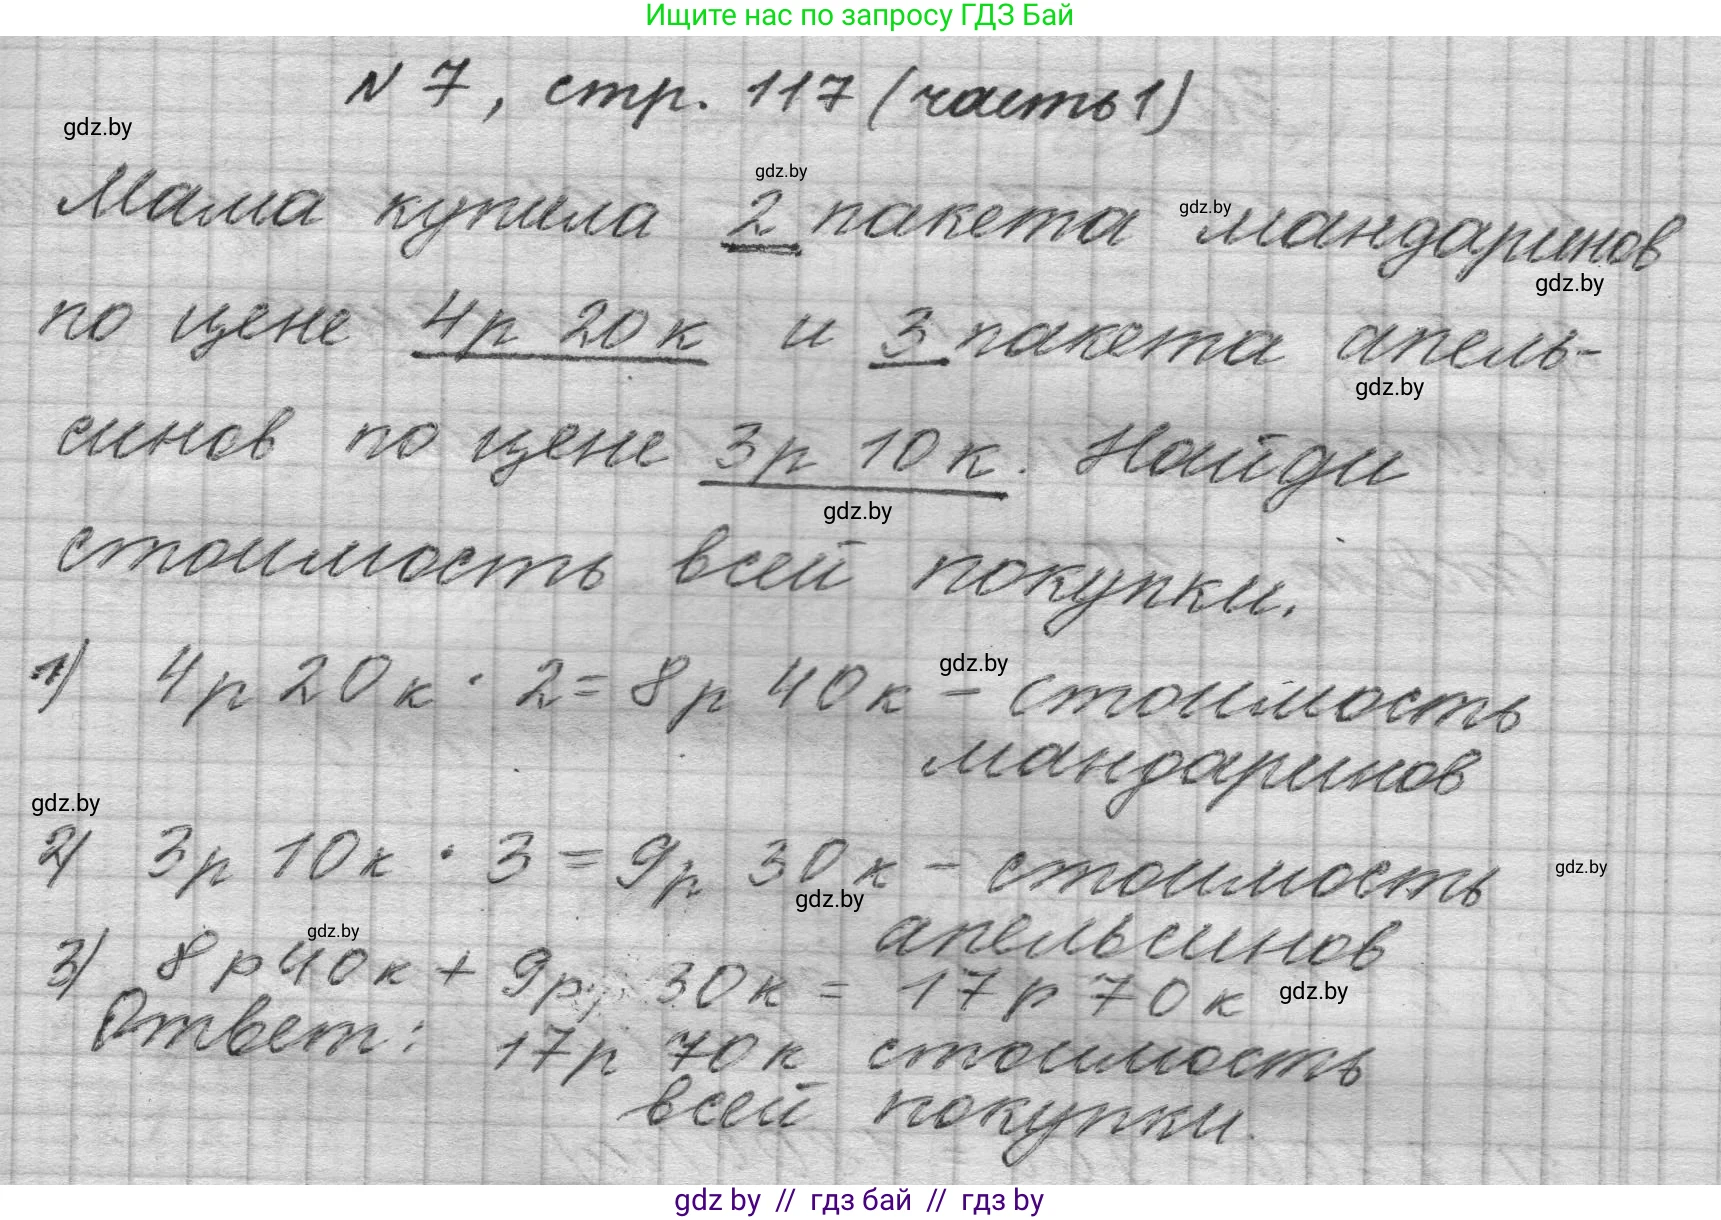 Ищите нас по запросу ГДЗ Бай
N 7, стр. 117 (часть 1)
gdz.by
gdz.by
Мама купила 2 пакета мандаринов
gdz.by
gdz.by
по цене 4р 20к и 3 пакета апель-
gdz.by
синов по цене 3р 10к. Найди
gdz.by
стоимость всей покупки.
1) 4р 20к · 2 = 8р 40к - стоимость
gdz.by
мандаринов
gdz.by
2) 3р 10к · 3 = 9р 30к - стоимость
gdz.by
gdz.by
апельсинов
gdz.by
3) 8р 40к + 9р 30к = 17р 70к
gdz.by
Ответ: 17р 70к стоимость
всей покупки.
gdz by // гдз бай // гдз by